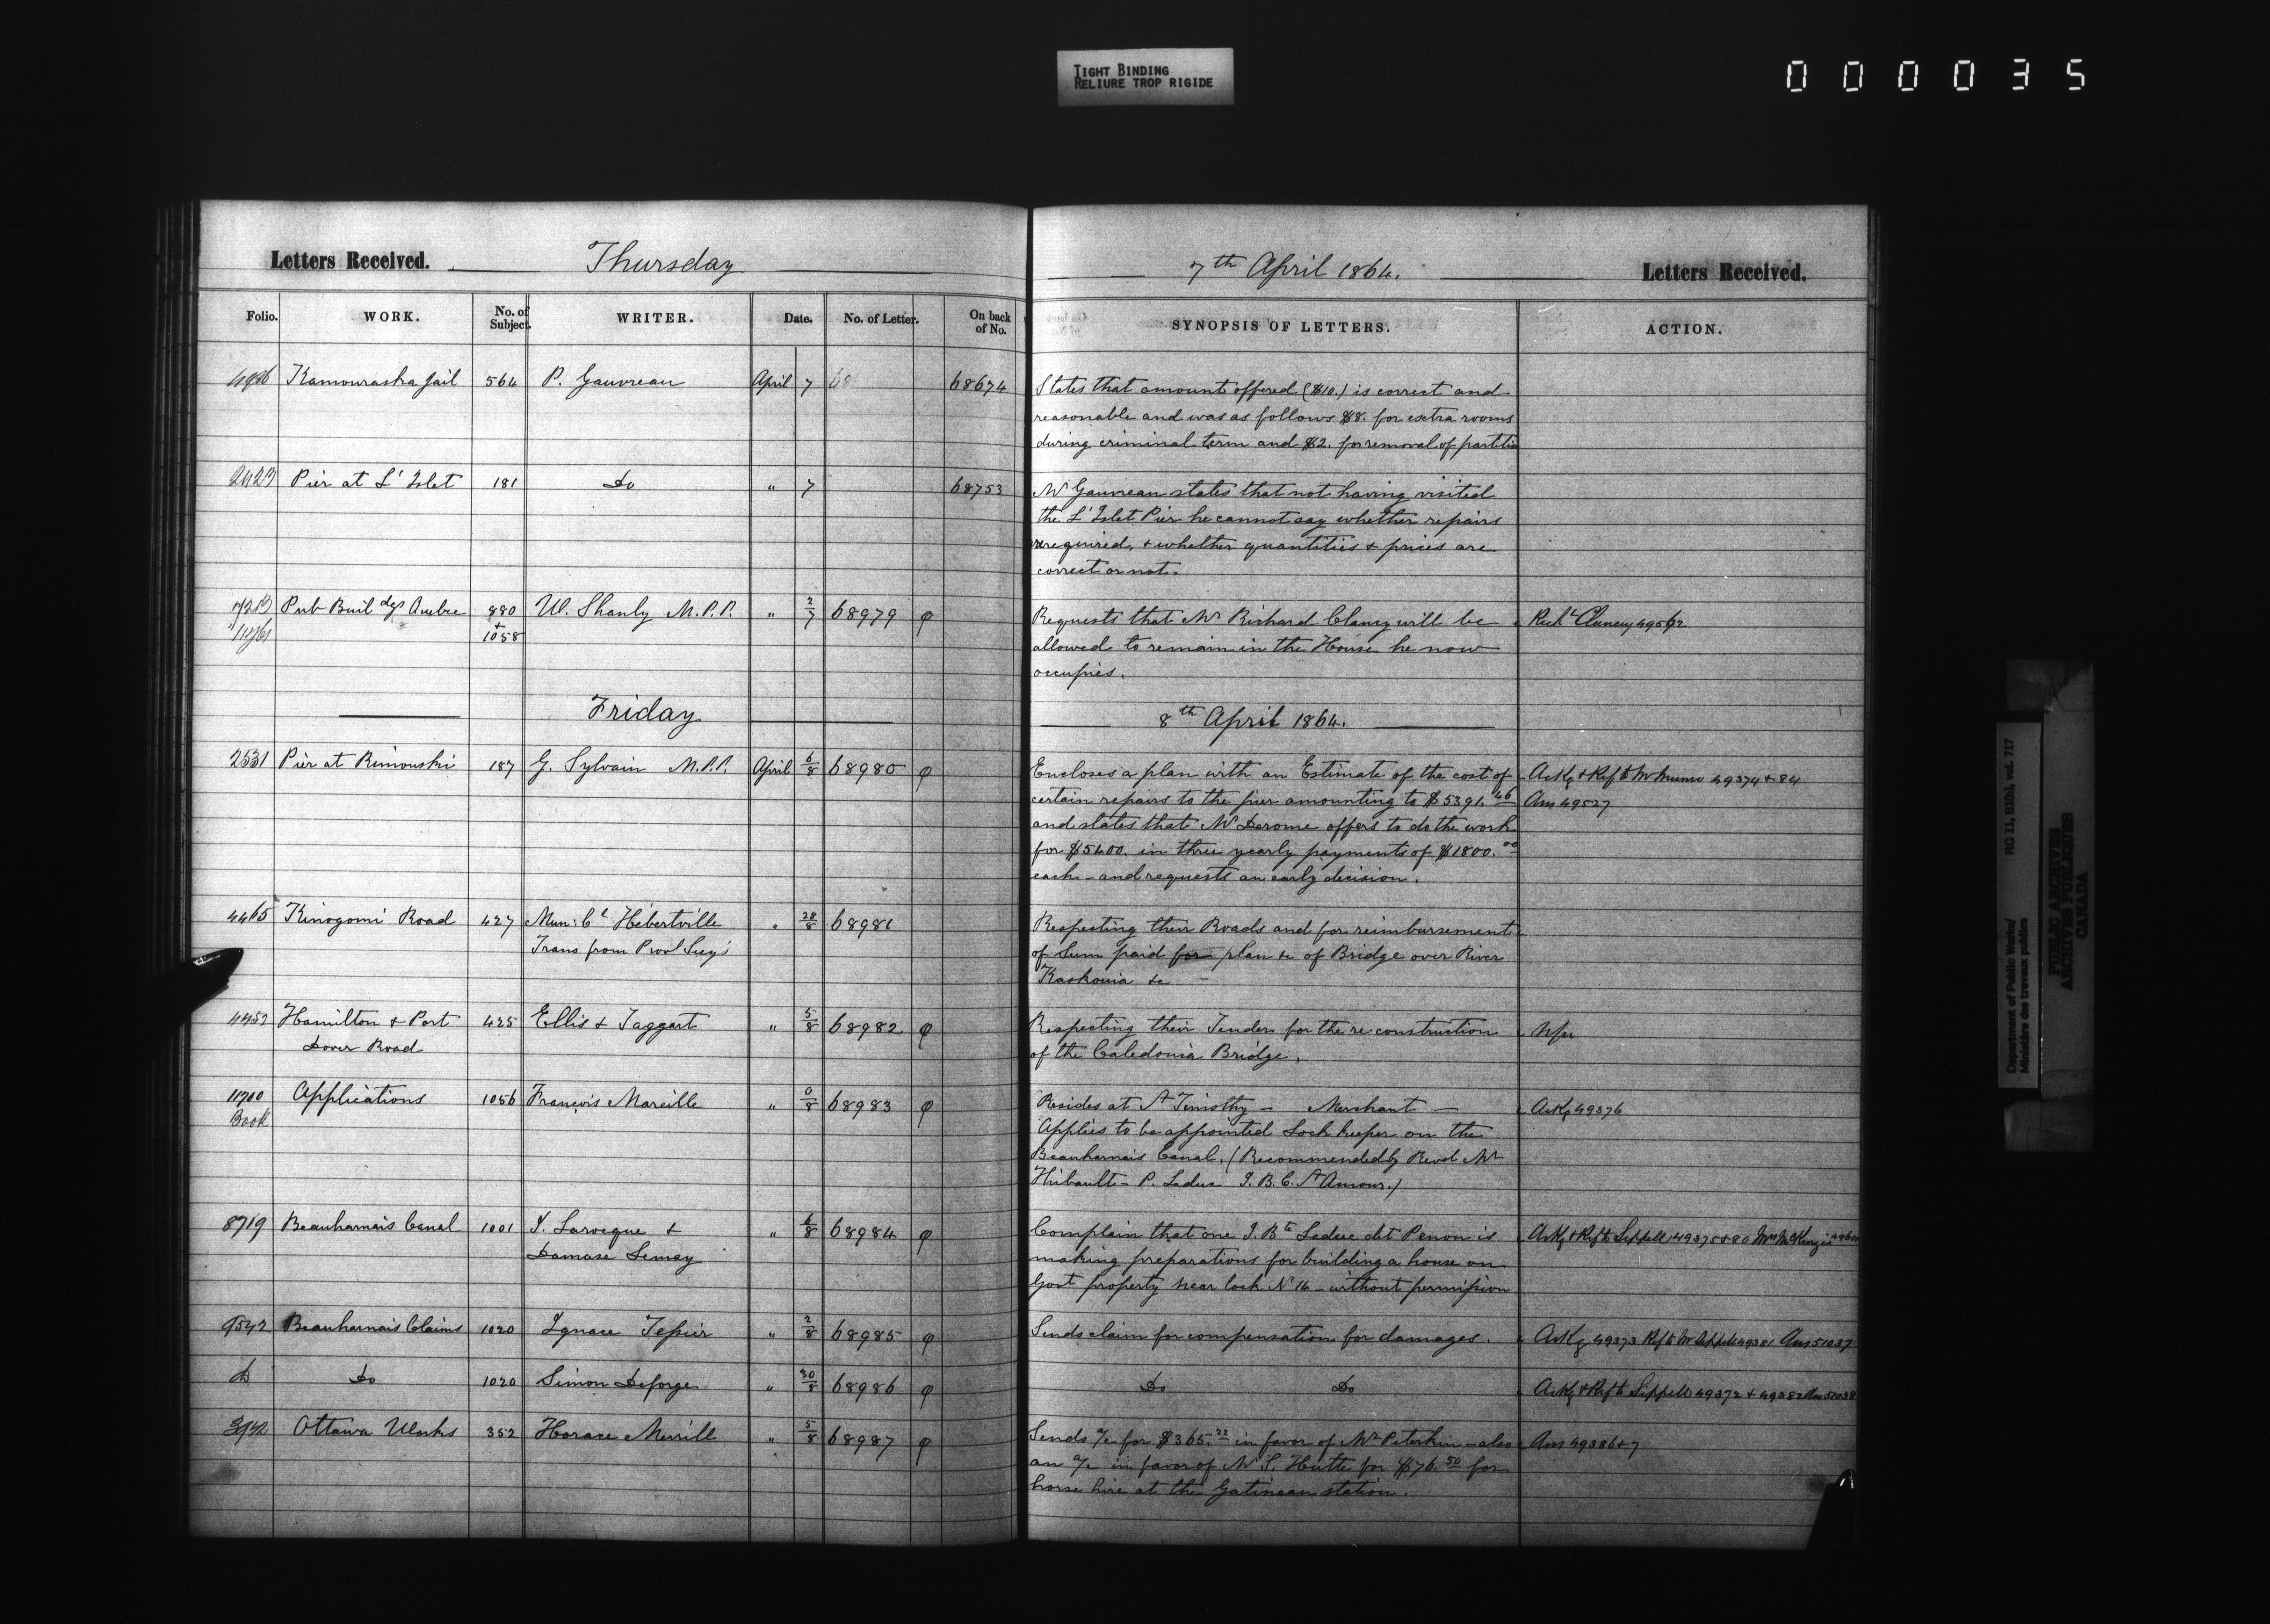 TIGHT BINDING
RELIURE TROP RIGIDE
000035
Letters Received. Thursday 7th April 1864. Letters Received.
Folio. WORK. No. of Subject. WRITER. Date. No. of Letter. On back of No. SYNOPSIS OF LETTERS. ACTION.
Kamouraska Jail 564 P. Gauvreau April 7 68 68674
States that amount offered ($10.) is correct and
reasonable and was as follows $8. for extra rooms
during criminal term and $2. for removal of partitio
Pier at L'Islet 181 Do " 7 68753
Mr Gauvreau states that not having visited
the L'Islet Pier he cannot say whether repairs
required, & whether quantities & prices are
correct or not.
Pub Buildgs Quebec 880 W. Shanly M.P.P. " 2/7 68979 φ
+
1058
Requests that Mr Richard Clancy will be
allowed to remain in the House he now
occupies.
Richd Clancy 49562
Friday 8th April 1864.
2531 Pier at Rimouski 187 G. Sylvain M.P.P. April 6/8 68980 φ
Encloses a plan with an Estimate of the cost of
certain repairs to the pier amounting to $5391.46
and states that Mr Derome offers to do the work
for $5400. in three yearly payments of $1800.00
each - and requests an early decision.
Ackg & Refd to Mr Munro 49374 & 84
Ans 49527
4465 Kinogomi Road 427 Mun: Cl Hébertville " 28/8 68981
Trans from Provl Secy's
Respecting their Roads and for reimbursement
of Sum paid for plan &c of Bridge over River
Kaskouia &c
4452 Hamilton & Port 425 Ellis & Taggart " 5/8 68982 φ
Dover Road
Respecting their Tender for the reconstruction
of the Caledonia Bridge.
11700 Applications 1056 François Mareille " 0/8 68983 φ
Book
Resides at St Timothy - Merchant -
Applies to be appointed Lock keeper on the
Beauharnais Canal. (Recommended by Revd Mr
Thibault - P. Leduc J.B.C. St Amour.)
Ackg 49376
8719 Beauharnais Canal 1001 J. Larocque & " 6/8 68984 φ
Damase Lemay
Complain that one J. Bte Leduc dit Penon is
making preparations for building a house on
Govt property near lock No 14 - without permission
Ackg & Refd to Sippell 49375 & 80 Mr McKenzie
9542 Beauharnais Claims 1020 Ignace Tessier " 2/8 68985 φ
Sends claim for compensation for damages.
Ackg 49373 Refd to Mr Sippell 49381 Ans 51037
Do Do 1020 Simon Deforge " 30/8 68986 φ
Do Do
Ackg & Refd to Sippell 49372 & 49382 Ans 51038
Ottawa Works 352 Horace Merrill " 5/8 68987 φ
Sends a/c for $365.22 in favor of Mr Peterkin - also
an a/c in favor of Mr S. Hutte for $76.50 for
horse hire at the Gatineau station.
Ans 49386 & 7
Department of Public Works/ RG 11, B1(b), vol. 717
Ministère des travaux publics
PUBLIC ARCHIVES
ARCHIVES PUBLIQUES
CANADA